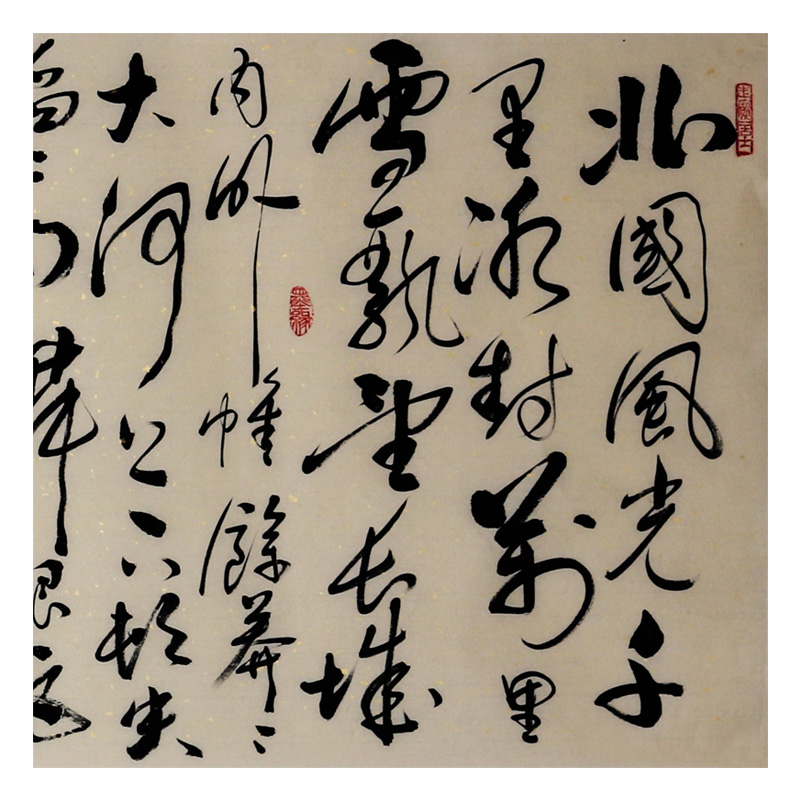 北國風光千
里冰封萬里
雪飄望長城
內外惟餘莽〻
大河上下頓失